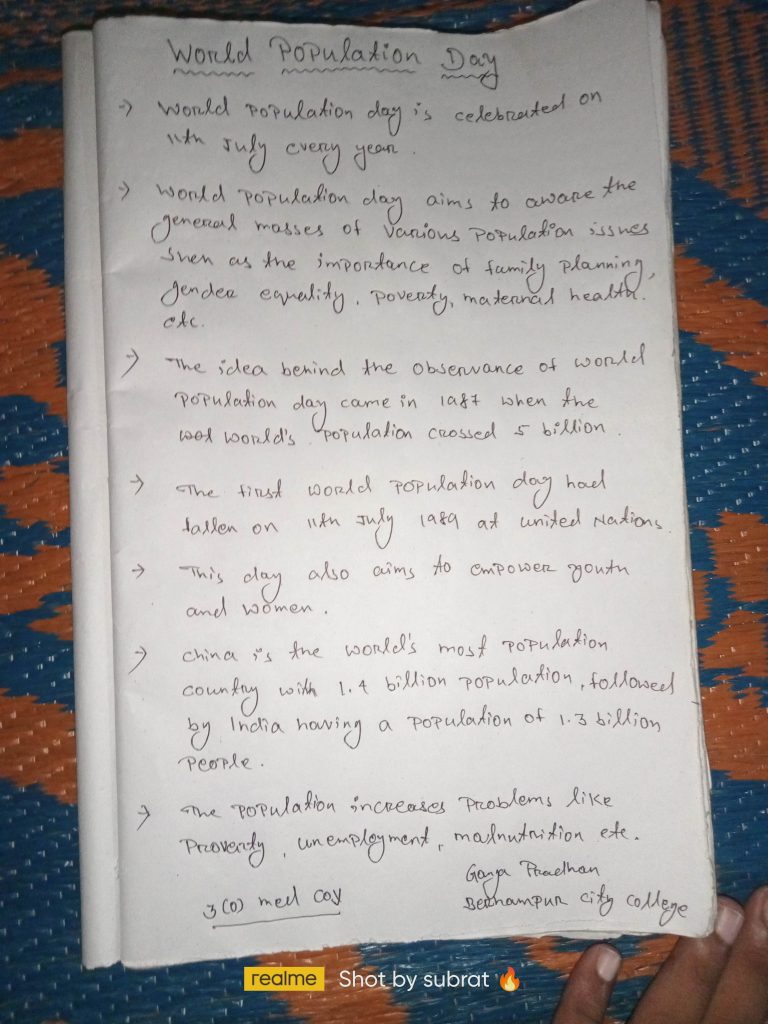 World Population Day
→ World population day is celebrated on
11th July every year.
→ World population day aims to aware the
general masses of various population issues
such as the importance of family planning,
gender equality, poverty, maternal health.
etc.
→ The idea behind the observance of world
population day came in 1987 when the
world's population crossed 5 billion.
→ The first world population day had
fallen on 11th July 1989 at united Nations.
→ This day also aims to empower youth
and women.
→ China is the world's most population
country with 1.4 billion population, followed
by India having a population of 1.3 billion
people.
→ The population increases problems like
Proverty, unemployment, malnutrition etc.
Pradhan
3(0) med coy
Berhampur city college
realme Shot by subrat 🔥